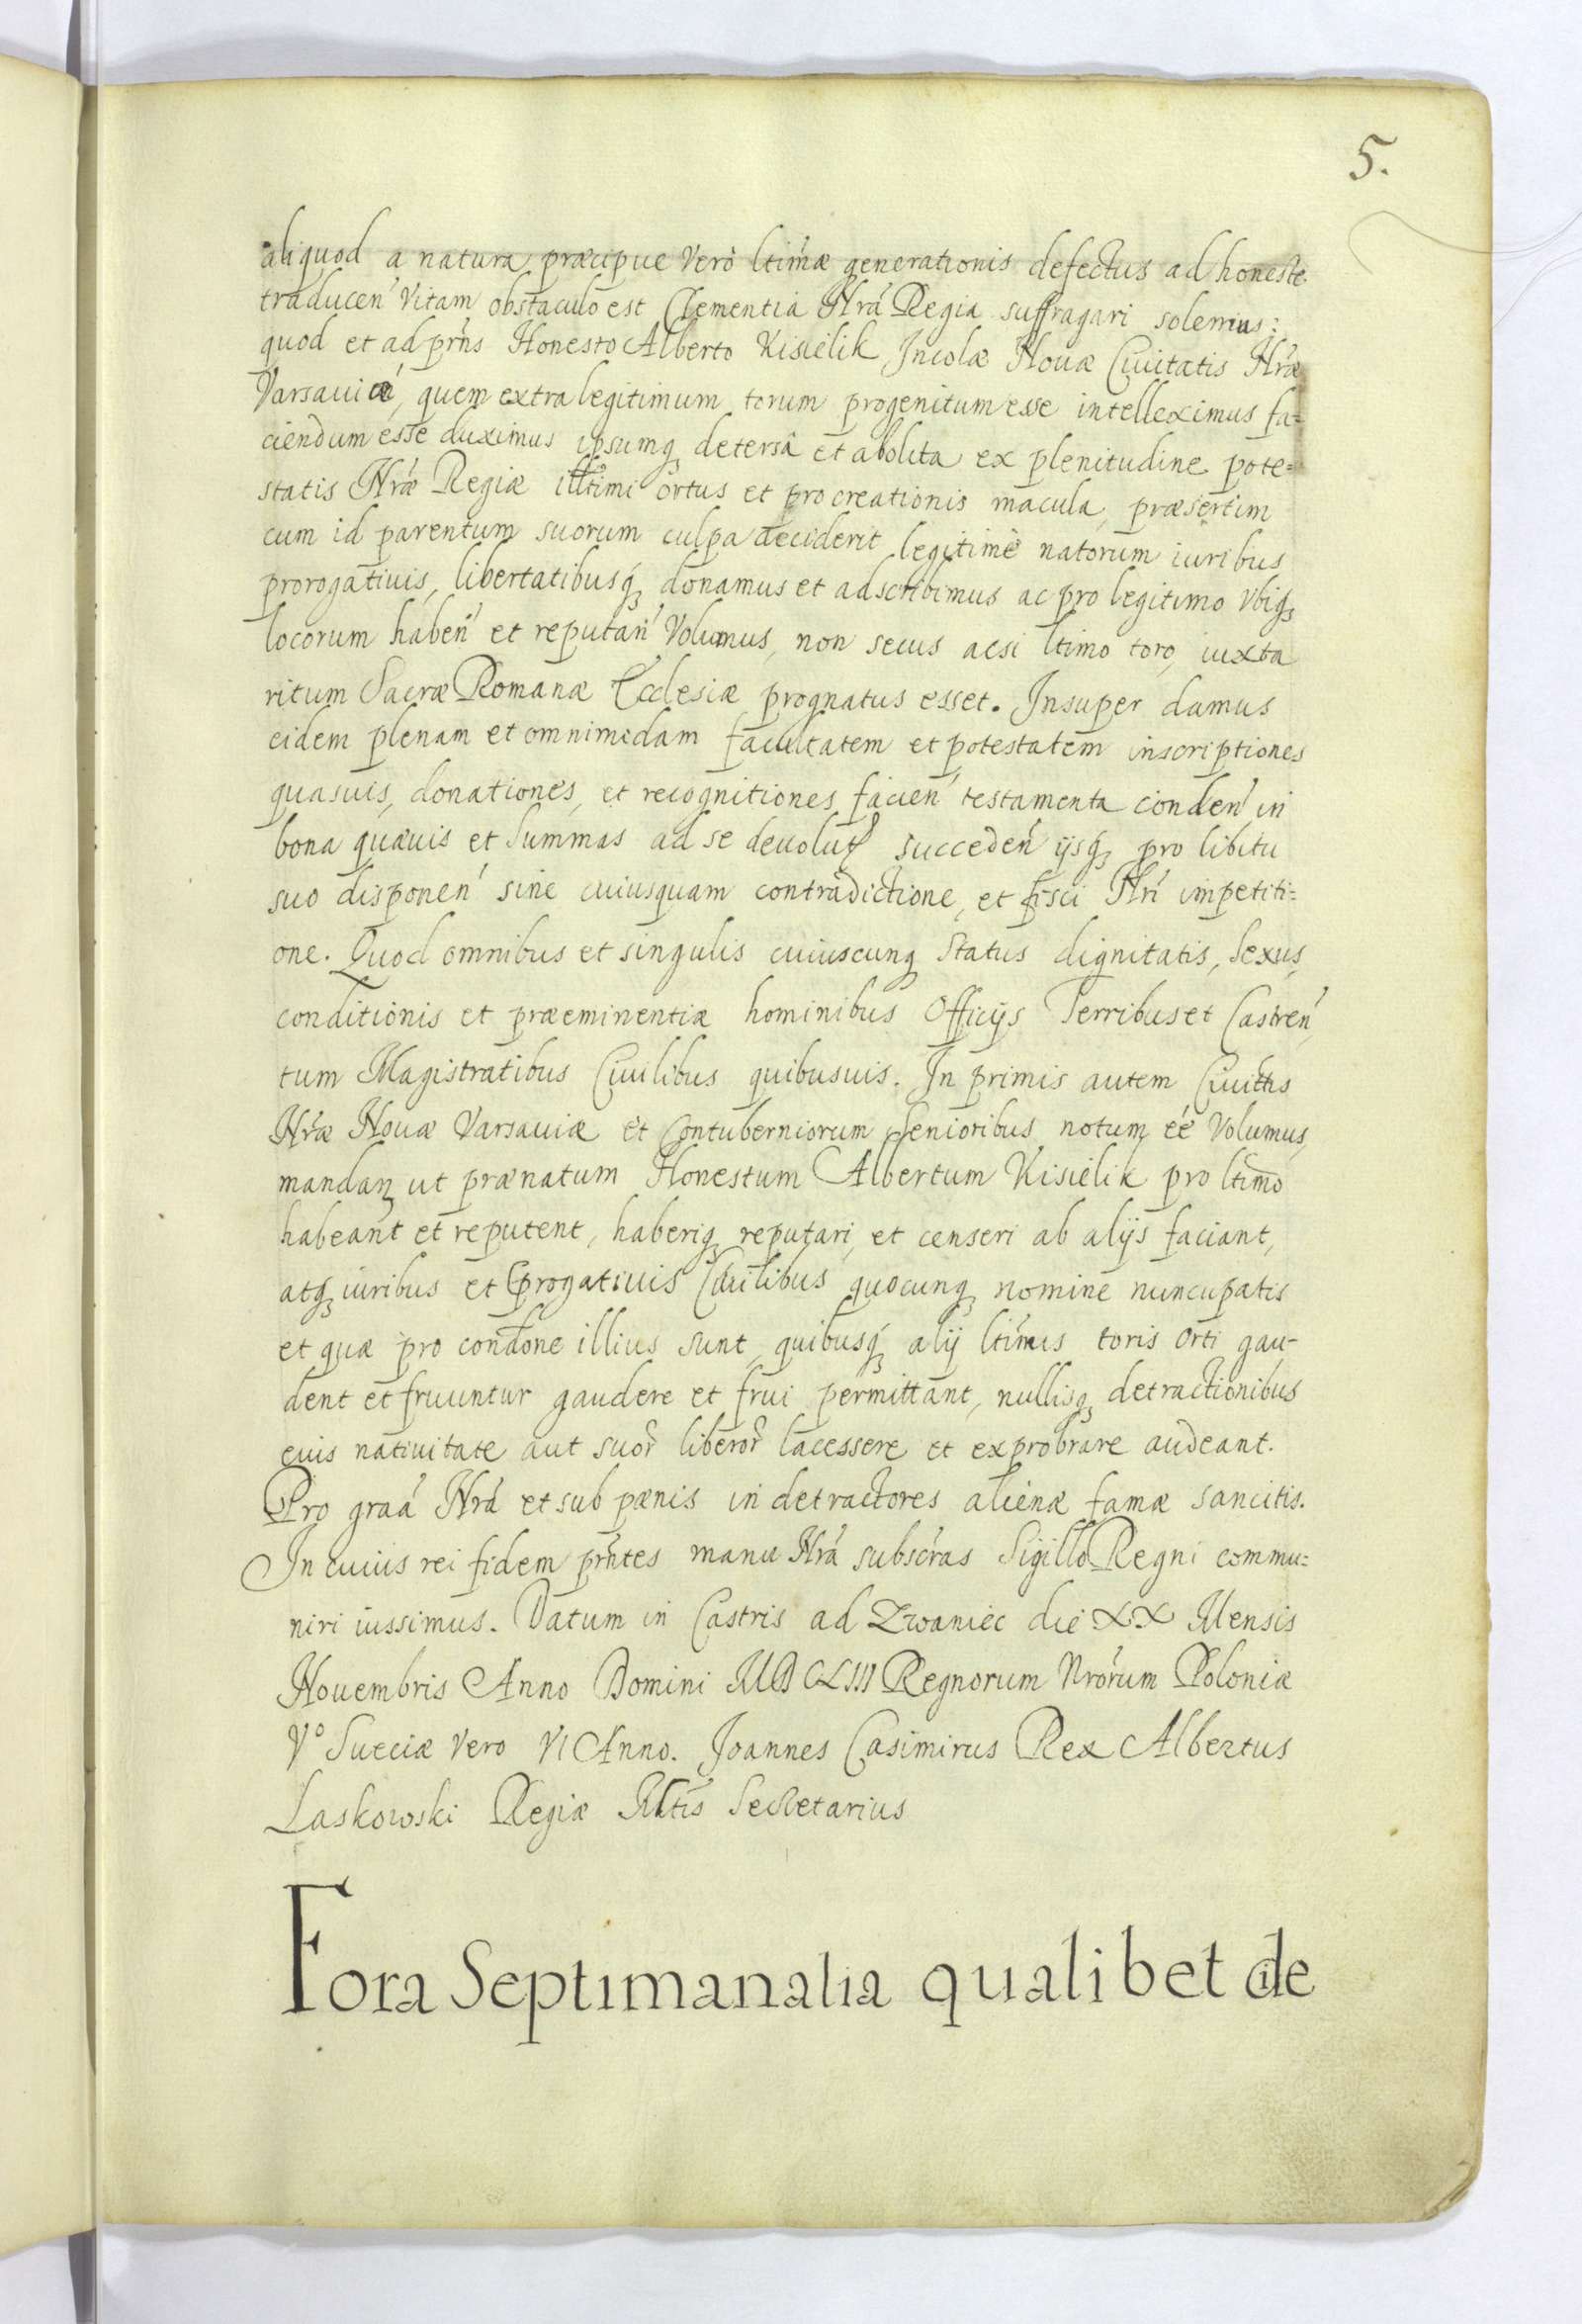 5.
aliquod a natura præcipue Verò ltimæ generationis defectus ad honeste
traducen Vitam obstaculo est Clementia Nra Regia suffragari solemus:
quod et ad prns Honesto Alberto Kisielik Incolæ Nouæ Ciuitatis Nræ
Varsauiæ, quem extra legitimum torum progenitum esse intelleximus fa=
ciendum esse duximus ipsumq detersâ et abolita ex plenitudine pote=
statis Nræ Regiæ illtimi ortus et procreationis macula, præsertim
cum id parentum suorum culpa deciderit legitimè natorum iuribus
prorogatiuis, libertatibusq donamus et adscribimus ac pro legitimo Vbiq
locorum haben et reputan Volumus, non secus acsi ltimo toro, iuxta
ritum Sacræ Romanæ Ecclesiæ prognatus esset. Insuper damus
eidem plenam et omnimodam facultatem et potestatem inscriptiones
quasuis, donationes, et recognitiones facien testamenta conden in
bona quæuis et Summas ad se deuolut succeden ijsq pro libitu
suo disponen sine cuiusquam contradictione, et fisci Nri impetiti=
one. Quod omnibus et singulis cuiuscunq Status dignitatis, Sexus,
conditionis et præeminentiæ hominibus Officijs Terribus et Castren
tum Magistratibus Ciuilibus quibusuis. In primis autem Ciuittis
Nræ Nouæ Varsauiæ et Contuberniorum Senioribus notum eé Volumus,
mandan ut prænatum Honestum Albertum Kisielik pro ltimo
habeant et reputent, haberiq reputari, et censeri ab alijs faciant,
atq iuribus et Prrogatiuis Ciuilibus quocunq nomine nuncupatis
et quæ pro condone illius sunt, quibusq alij ltimis toris orti gau-
dent et fruuntur gaudere et frui permittant, nullisq detractionibus
euis natiuitate aut suor liberor lacessere et exprobrare audeant.
Pro graâ Nrâ et sub pænis in detractores alienæ famæ sancitis.
In cuius rei fidem prntes manu Nrâ subscras Sigillo Regni commu=
niri iussimus. Datum in Castris ad Zwaniec die XX Mensis
Nouembris Anno Domini MDCLIII Regnorum Nrorum Poloniæ
Vº Sueciæ Vero VI Anno. Joannes Casimirus Rex Albertus
Laskowski Regiæ Mttis Secretarius
Fora Septimanalia qualibet die